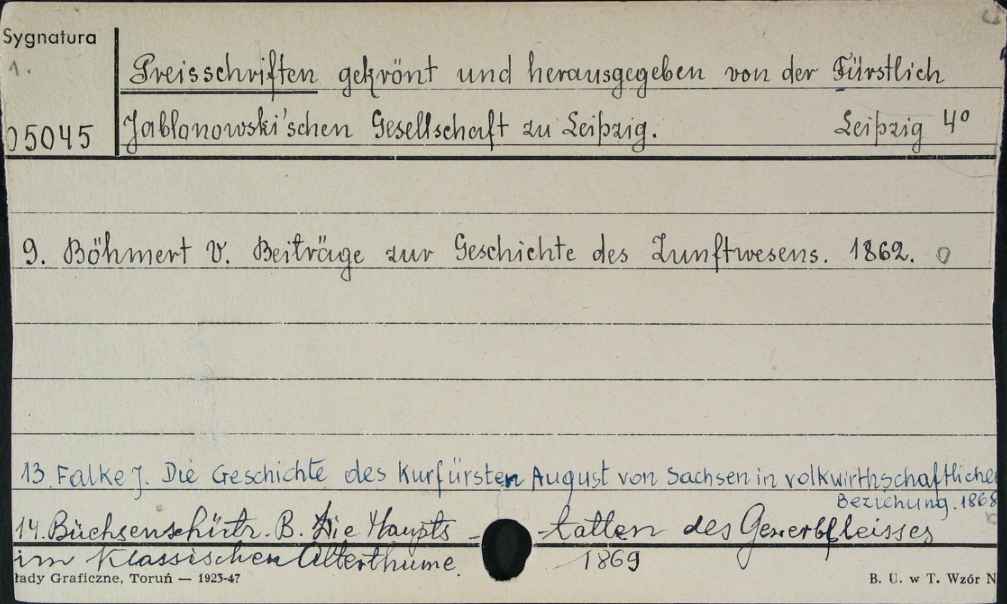 Sygnatura
1.
Preisschriften gekrönt und herausgegeben von der Fürstlich
05045
Jablonowski'schen Gesellschaft zu Leipzig. Leipzig 4º
9. Böhmert V. Beiträge zur Geschichte des Zunftwesens. 1862. 0
13. Falke J. Die Geschichte des Kurfürsten August von Sachsen in volkwirthschaftliche
Beziehung. 1868
14. Büchsenschütz. B. Die Haupts - tätten des Gewerbfleisses
im klassischen Alterthume. 1869
łady Graficzne, Toruń — 1925-47
B. U. w T. Wzór N